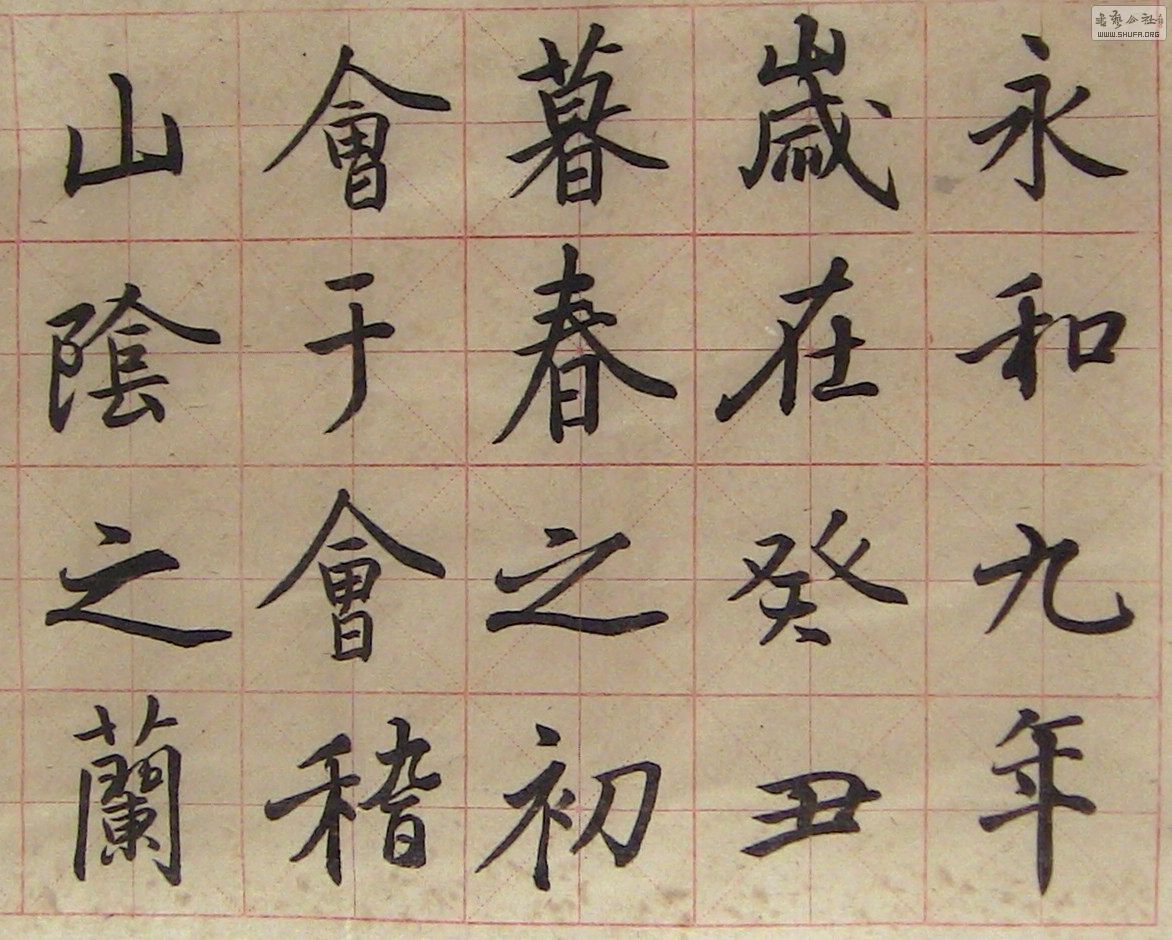 永和九年
歲在癸丑
暮春之初
會于會稽
山陰之蘭
WWW.SHUFA.ORG